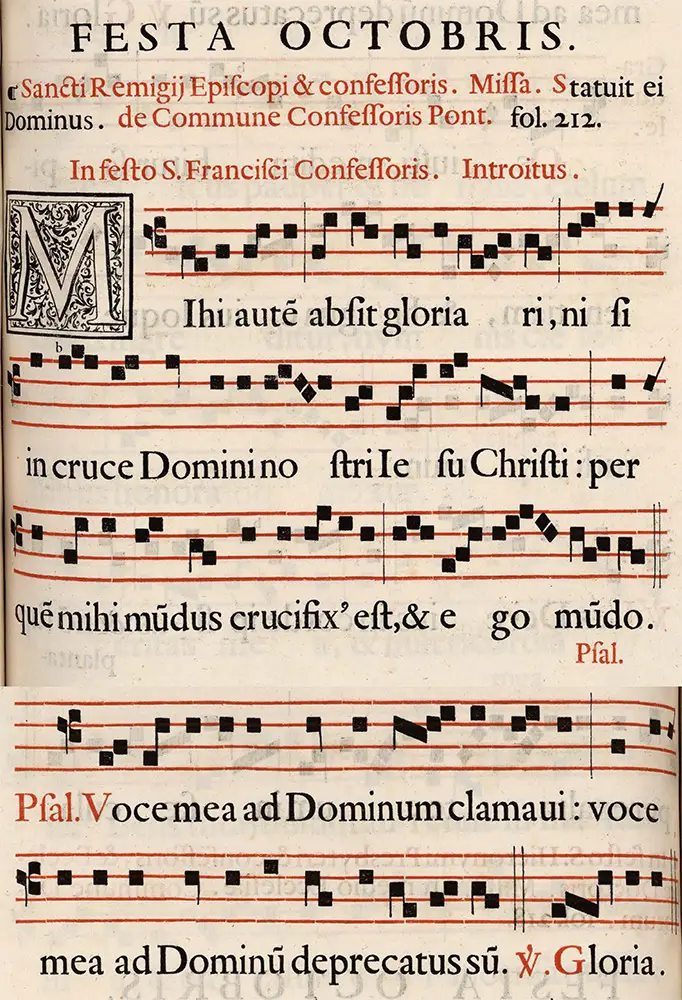 FESTA OCTOBRIS.
¶ Sancti Remigij Epiſcopi & confeſſoris. Miſſa. Statuit ei
Dominus. de Commune Confeſſoris Pont. fol. 212.
In feſto S. Franciſci Confeſſoris. Introitus.
MIhi autē abſit gloria ri, ni ſi
b
in cruce Domini no ſtri Ie ſu Chriſti : per
quē mihi mūdus crucifix' eſt, & e go mūdo.
Pſal.
Pſal. Voce mea ad Dominum clamaui : voce
mea ad Dominū deprecatus sū. ℣. Gloria.